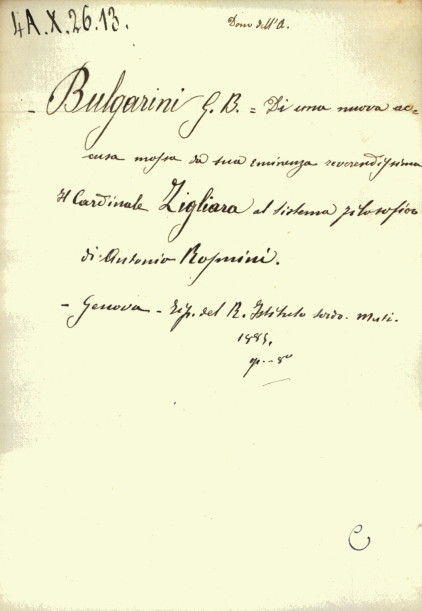 4A.X.26.13.
Dono dell'A.
- Bulgarini G. B. = Di una nuova ac=
cusa mossa da sua eminenza reverendissima
Il Cardinale Zigliara al sistema filosofico
di Antonio Rosmini.
- Genova - Tip. del R. Istituto Sordo-Muti.
1885.
8°
C